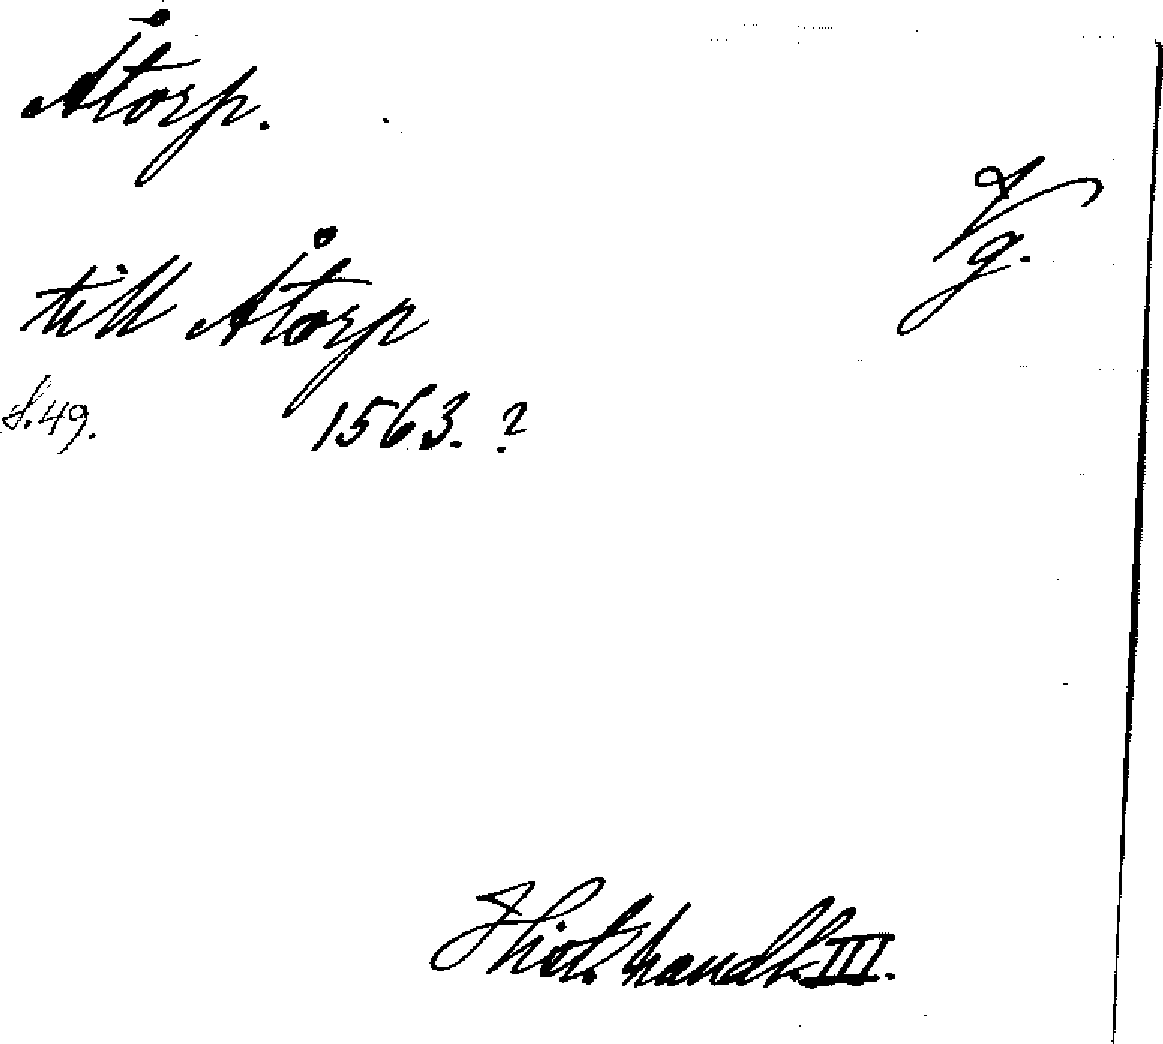 Åtorp.
Vg.
till Åtorp
s. 49. 1563. ?
Hist. handl. III.